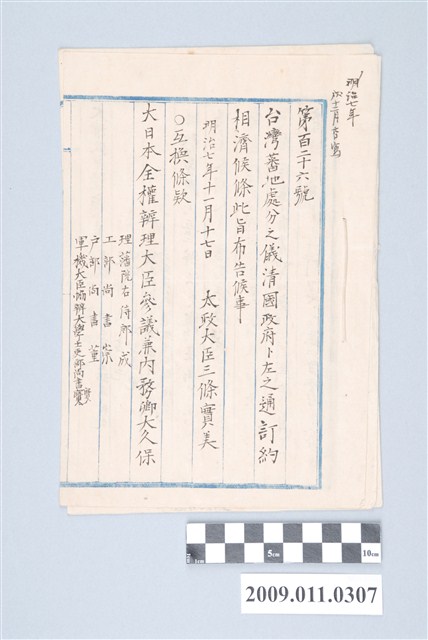 明治七年
十二月
第百二十六號
台灣蕃地處分之儀清國政府ト左之通訂約
相濟候條此旨布告候事
明治七年十一月十七日 太政大臣三條實美
○互換條欵
大日本全權辨理大臣參議兼内務卿大久保
理藩院右侍郎成
工部尚書崇
戸部尚書董
軍機大臣協辨大學士吏部尚書寶
1cm 5cm 10cm
2009.011.0307